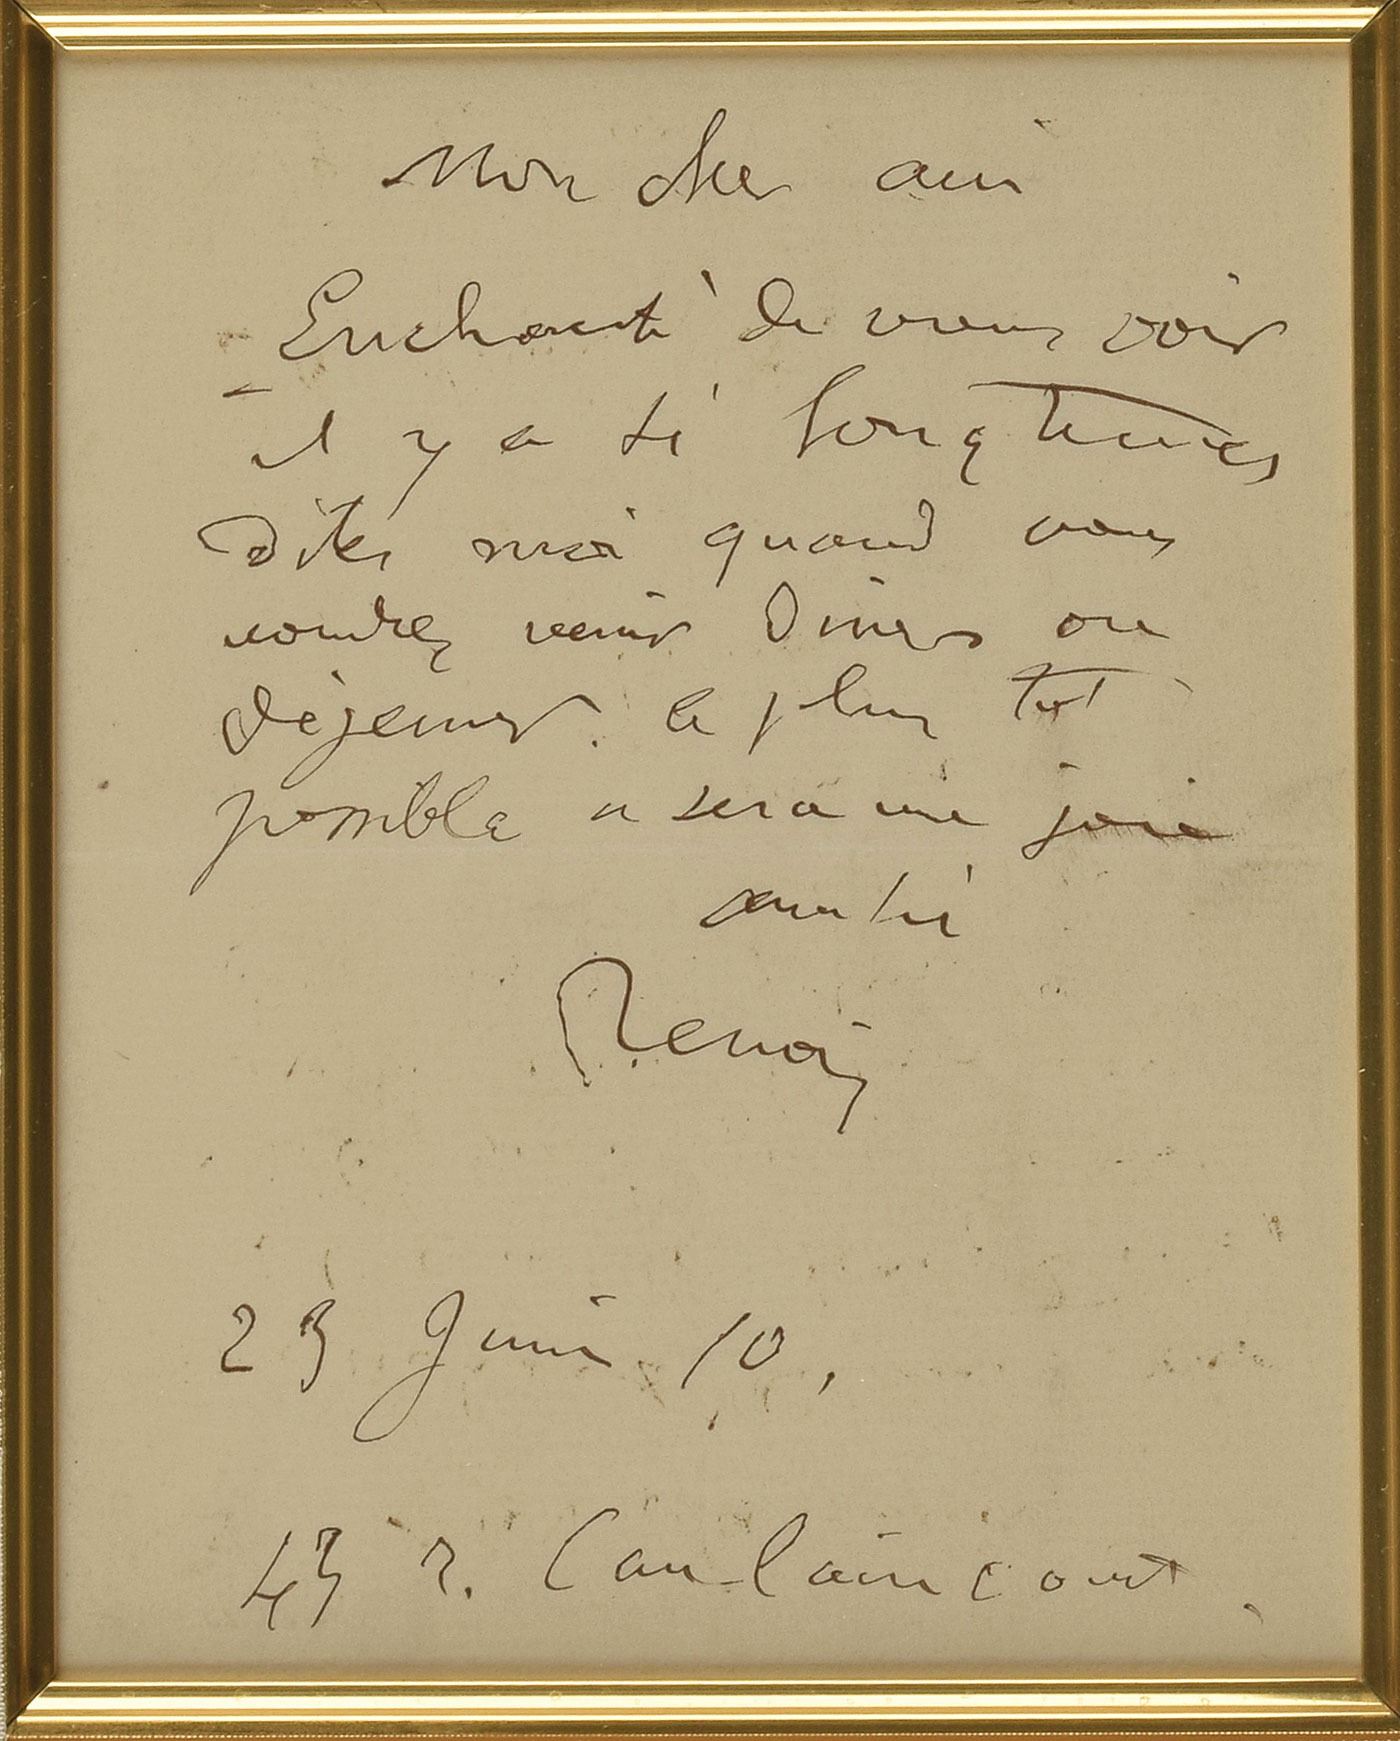 Mon cher ami
Enchanté de vous voir
il y a si longtemps
dites moi quand vous
voudrez venir diner ou
déjeuner. le plus tôt
possible ce sera une joie
amitié
Renoir
23 Juin 10,
43 r. Caulaincourt.